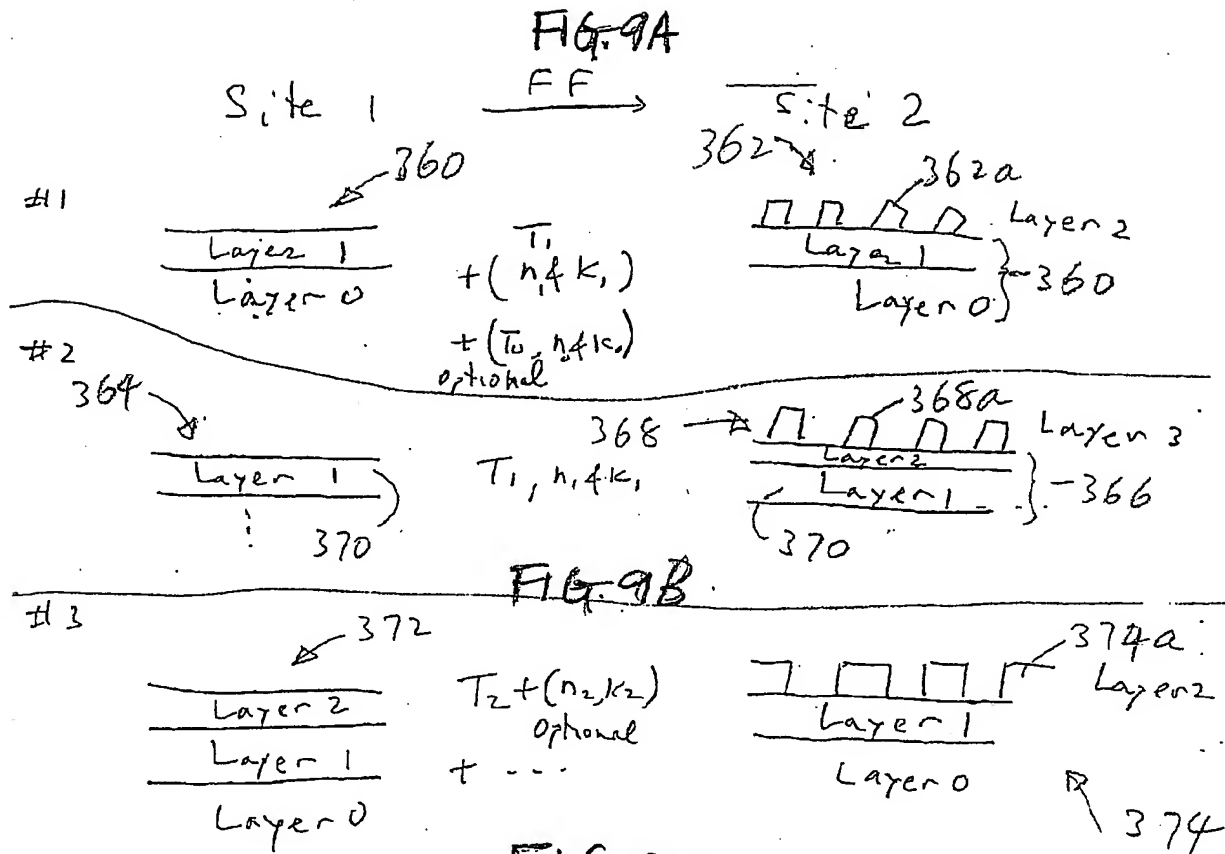 FIG. 9A
Site 1 FF Site 2
360
362
362a
#1
Layer 1
Layer 0
T1
+ ( n1 & k1 )
+ (T0, n0 & k0)
optional
Layer 2
Layer 1
Layer 0
360
#2
364
Layer 1
370
T1, n1 & k1
368
368a
Layer 3
Layer 2
Layer 1
366
370
FIG. 9B
#3
372
Layer 2
Layer 1
Layer 0
T2 + (n2, k2)
optional
+ ----
374a
Layer 2
Layer 1
Layer 0
374